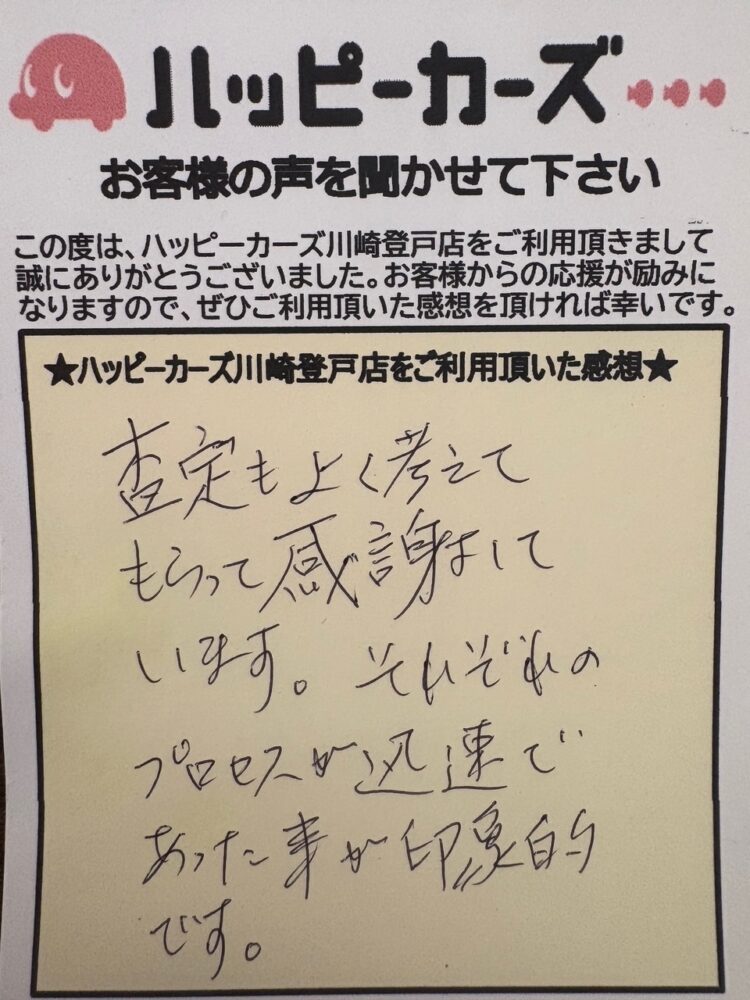 ハッピーカーズ
お客様の声を聞かせて下さい
この度は、ハッピーカーズ川崎登戸店をご利用頂きまして
誠にありがとうございました。お客様からの応援が励みに
なりますので、ぜひご利用頂いた感想を頂ければ幸いです。
★ハッピーカーズ川崎登戸店をご利用頂いた感想★
査定もよく考えて
もらって感謝はして
います。それぞれの
プロセスが迅速で
あった事が印象的
です。